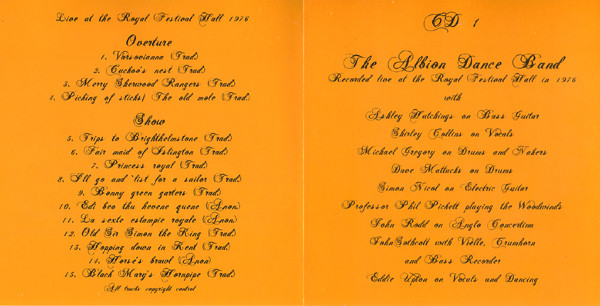 Live at the Royal Festival Hall 1976
Overture
1. Varsovianna (Trad)
2. Cuckoo's nest (Trad)
3. Merry Sherwood Rangers (Trad)
4. Picking of sticks/ The old mole (Trad)
Show
5. Trips to Brighthelmstone (Trad)
6. Fair maid of Islington (Trad)
7. Princess royal (Trad)
8. I'll go and 'list for a sailor (Trad)
9. Bonny green garters (Trad)
10. Edi beo thu hevene quene (Anon)
11. La sexte estampie royale (Anon)
12. Old Sir Simon the King (Trad)
13. Hopping down in Kent (Trad)
14. Horse's brawl (Anon)
15. Black Mary's Hornpipe (Trad)
All tracks copyright control
CD 1
The Albion Dance Band
Recorded live at the Royal Festival Hall in 1976
with
Ashley Hutchings on Bass Guitar
Shirley Collins on Vocals
Michael Gregory on Drums and Nakers
Dave Mattacks on Drums
Simon Nicol on Electric Guitar
Professor Phil Pickett playing the Woodwinds
John Rodd on Anglo Concertina
John Sothcott with Vielle, Crumhorn
and Bass Recorder
Eddie Upton on Vocals and Dancing